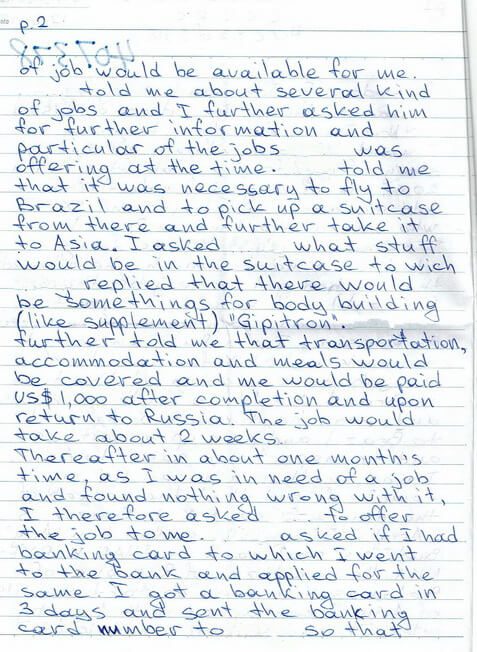 p. 2
407378
of job would be available for me.
told me about several kind
of jobs and I further asked him
for further information and
particular of the jobs was
offering at the time. told me
that it was necessary to fly to
Brazil and to pick up a suitcase
from there and further take it
to Asia. I asked what stuff
would be in the suitcase to wich
replied that there would
be somethings for body building
(like supplement) "Gipitron".
further told me that transportation,
accommodation and meals would
be covered and me would be paid
US$ 1,000 after completion and upon
return to Russia. The job would
take about 2 weeks.
Thereafter in about one month's
time, as I was in need of a job
and found nothing wrong with it,
I therefore asked to offer
the job to me. asked if I had
banking card to which I went
to the bank and applied for the
same. I got a banking card in
3 days and sent the banking
card number to so that